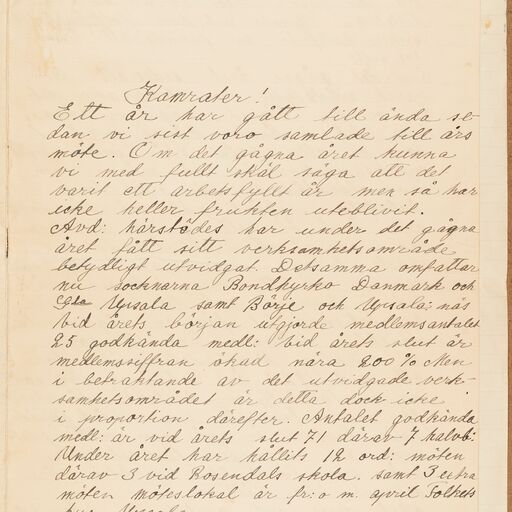 Kamrater!
Ett år har gått till ända se-
dan vi sist voro samlade till års
möte. Om det gågna året kunna
vi med fullt skäl säga att det
varit ett arbetsfyllt år men så har
icke heller frukten uteblivit.
Avd: härstädes har under det gågna
året fått sitt verksamhetsområde
betydligt utvidgat. Detsamma omfattar
nu socknarna Bondkyrko Danmark och
Upsala samt Börje och Upsala-näs
Vid årets början utgjorde medlemsantalet
25 godkända medl: vid årets slut är
medlemssiffran ökad nära 200% Men
i betraktande av det utvidgade verk-
samhetsområdet är detta dock icke
i proportion därefter. Antalet godkända
medl: är vid årets slut 71 därav 7 halvb:
Under året har hållits 12 ord: möten
därav 3 vid Rosendals skola. samt 3 extra
möten möteslokal är fr: o m. april Folkets
hus Upsala